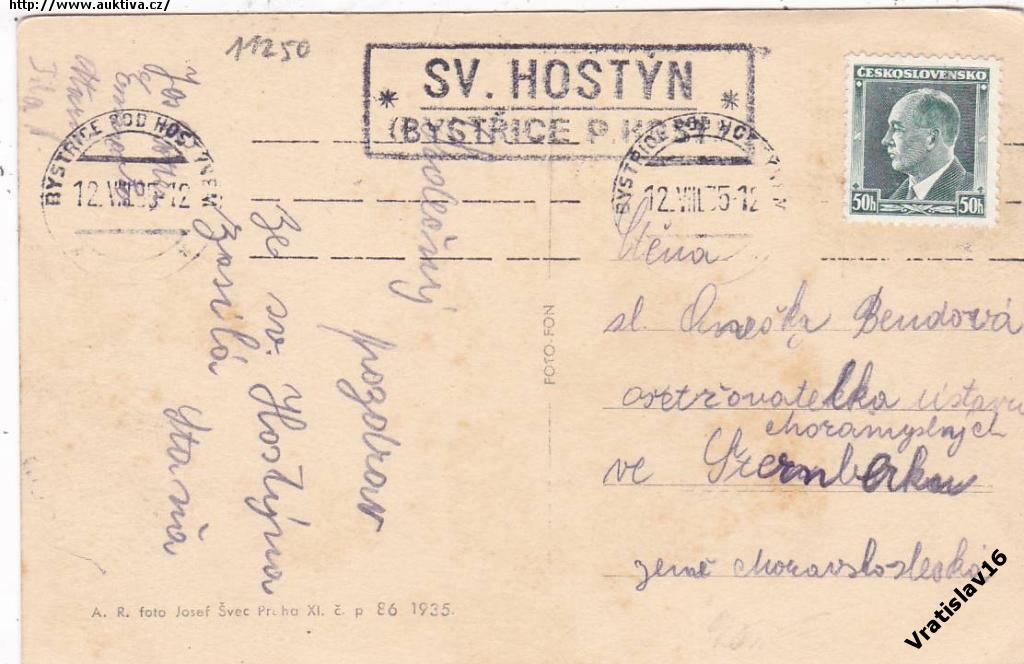 http://www.auktiva.cz/
11250
* SV. HOSTÝN *
(BYSTŘICE P. HOST.)
BYSTŘICE POD HOSTÝNEM
12.VIII.35-12
BYSTŘICE POD HOSTÝNEM
12.VIII.35-12
ČESKOSLOVENSKO
50h 50h
pozdrav
ze sv. Hostýna
zasílá
Ctěná
sl. Anežka Bendová
ošetřovatelka ústavu
choromyslných
ve Šternberku
země moravskoslezská
FOTO-FON
A. R. foto Josef Švec Praha XI. č. p 86 1935.
Vratislav16